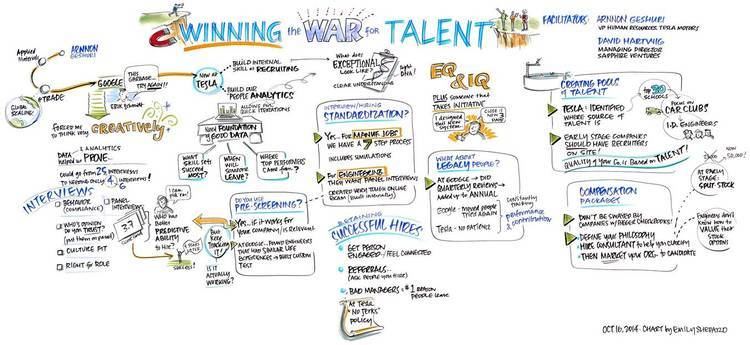 WINNING the WAR for TALENT
FACILITATORS:
ARNNON GESHURI
VP HUMAN RESOURCES TESLA MOTORS
DAVID HARTWIG
MANAGING DIRECTOR
SAPPHIRE VENTURES
ARNNON
GESHURI
Applied
Materials
E*TRADE
GLOBAL
SCALING
GOOGLE
THIS
GREAT...
TRY AGAIN!!
ERIK Schmidt
FORCED ME
TO THINK VERY
CREATIVELY
NOW AT
TESLA
BUILD INTERNAL
SKILL at RECRUITING
BUILD OUR
PEOPLE ANALYTICS
ALLOWING OUR
QUICK ITERATIONS
NEED FOUNDATION
of GOOD DATA!
WHAT
SKILL SETS
SUCCEED
MOST?
WHEN
WILL
SOMEONE
LEAVE?
WHERE
TOP PERFORMERS
CAME FROM?
WHAT DOES
EXCEPTIONAL
LOOK LIKE?
CLEAR UNDERSTANDING
DNA!
DATA & ANALYTICS
HELPED us PROVE...
COULD go FROM 25 INTERVIEWS
TO NEEDING ONLY 4-6 INTERVIEWS!
INTERVIEWS
BEHAVIOR
(COMPLIANCE)
PANEL
INTERVIEWS
WHO'S OPINION
Do you TRUST?
(put them on panel)
CULTURE FIT
RIGHT for ROLE
3.7
WHO HAS
BETTER
PREDICTIVE
ABILITY
TO HIRE?
SUCCESS!
DO YOU USE
PRE-SCREENING?
YES... if it WORKS for
YOUR COMPANY/is RELEVANT
BUT KEEP
TRACKING
IT!
IS IT
ACTUALLY
WORKING?
AT GOOGLE... FOUND ENGINEERS
HAD SIMILAR LIFE
EXPERIENCES → BUILT CUSTOM
TEST
INTERVIEW/HIRING
STANDARDIZATION?
YES... FOR MANUF. JOBS
WE HAVE A 7 STEP PROCESS
INCLUDES SIMULATIONS
For ENGINEERING
THEY WANT PANEL INTERVIEWS
CREATED VERY TOUGH ONLINE
EXAM (built internally)
RETAINING
SUCCESSFUL HIRES
GET PERSON
ENGAGED/FEEL CONNECTED
REFERRALS...
(ASK PEOPLE YOU HIRE)
BAD MANAGERS = #1 REASON
PEOPLE LEAVE
AT TESLA
"NO JERKS"
POLICY
EQ
& IQ
PLUS SOMEONE THAT
TAKES INITIATIVE
I designed
this new
system
WHAT ABOUT
LEGACY PEOPLE?
AT GOOGLE → DID
QUARTERLY REVIEWS →
ADDED UP TO ANNUAL
Google - moved people
TRIED AGAIN
Tesla - NO PATIENCE
constantly
tracking
performance
& contribution
CREATING POOLS
of TALENT
TESLA: IDENTIFIED
WHERE SOURCE OF
TALENT IS
EARLY STAGE COMPANIES
SHOULD HAVE RECRUITERS
ON SITE!
QUALITY of YOUR Co. IS BASED on TALENT!
TOP 20
SCHOOLS
FOCUS ON
CAR CLUBS
I.D. ENGINEERS
COMPENSATION
PACKAGES
DON'T BE SWAYED BY
COMPANIES w/ BIGGER CHECKBOOKS!
DEFINE YOUR PHILOSOPHY
HIRE CONSULTANT to help you CLARIFY
THEN MARKET your ORG. to CANDIDATE
NOW
50,000!
AT EARLY-
STAGE
SPLIT STOCK
Engineers don't
know how to
VALUE their
STOCK
OPTIONS
OCT 10, 2014 · CHART by EMILY SHEPARD